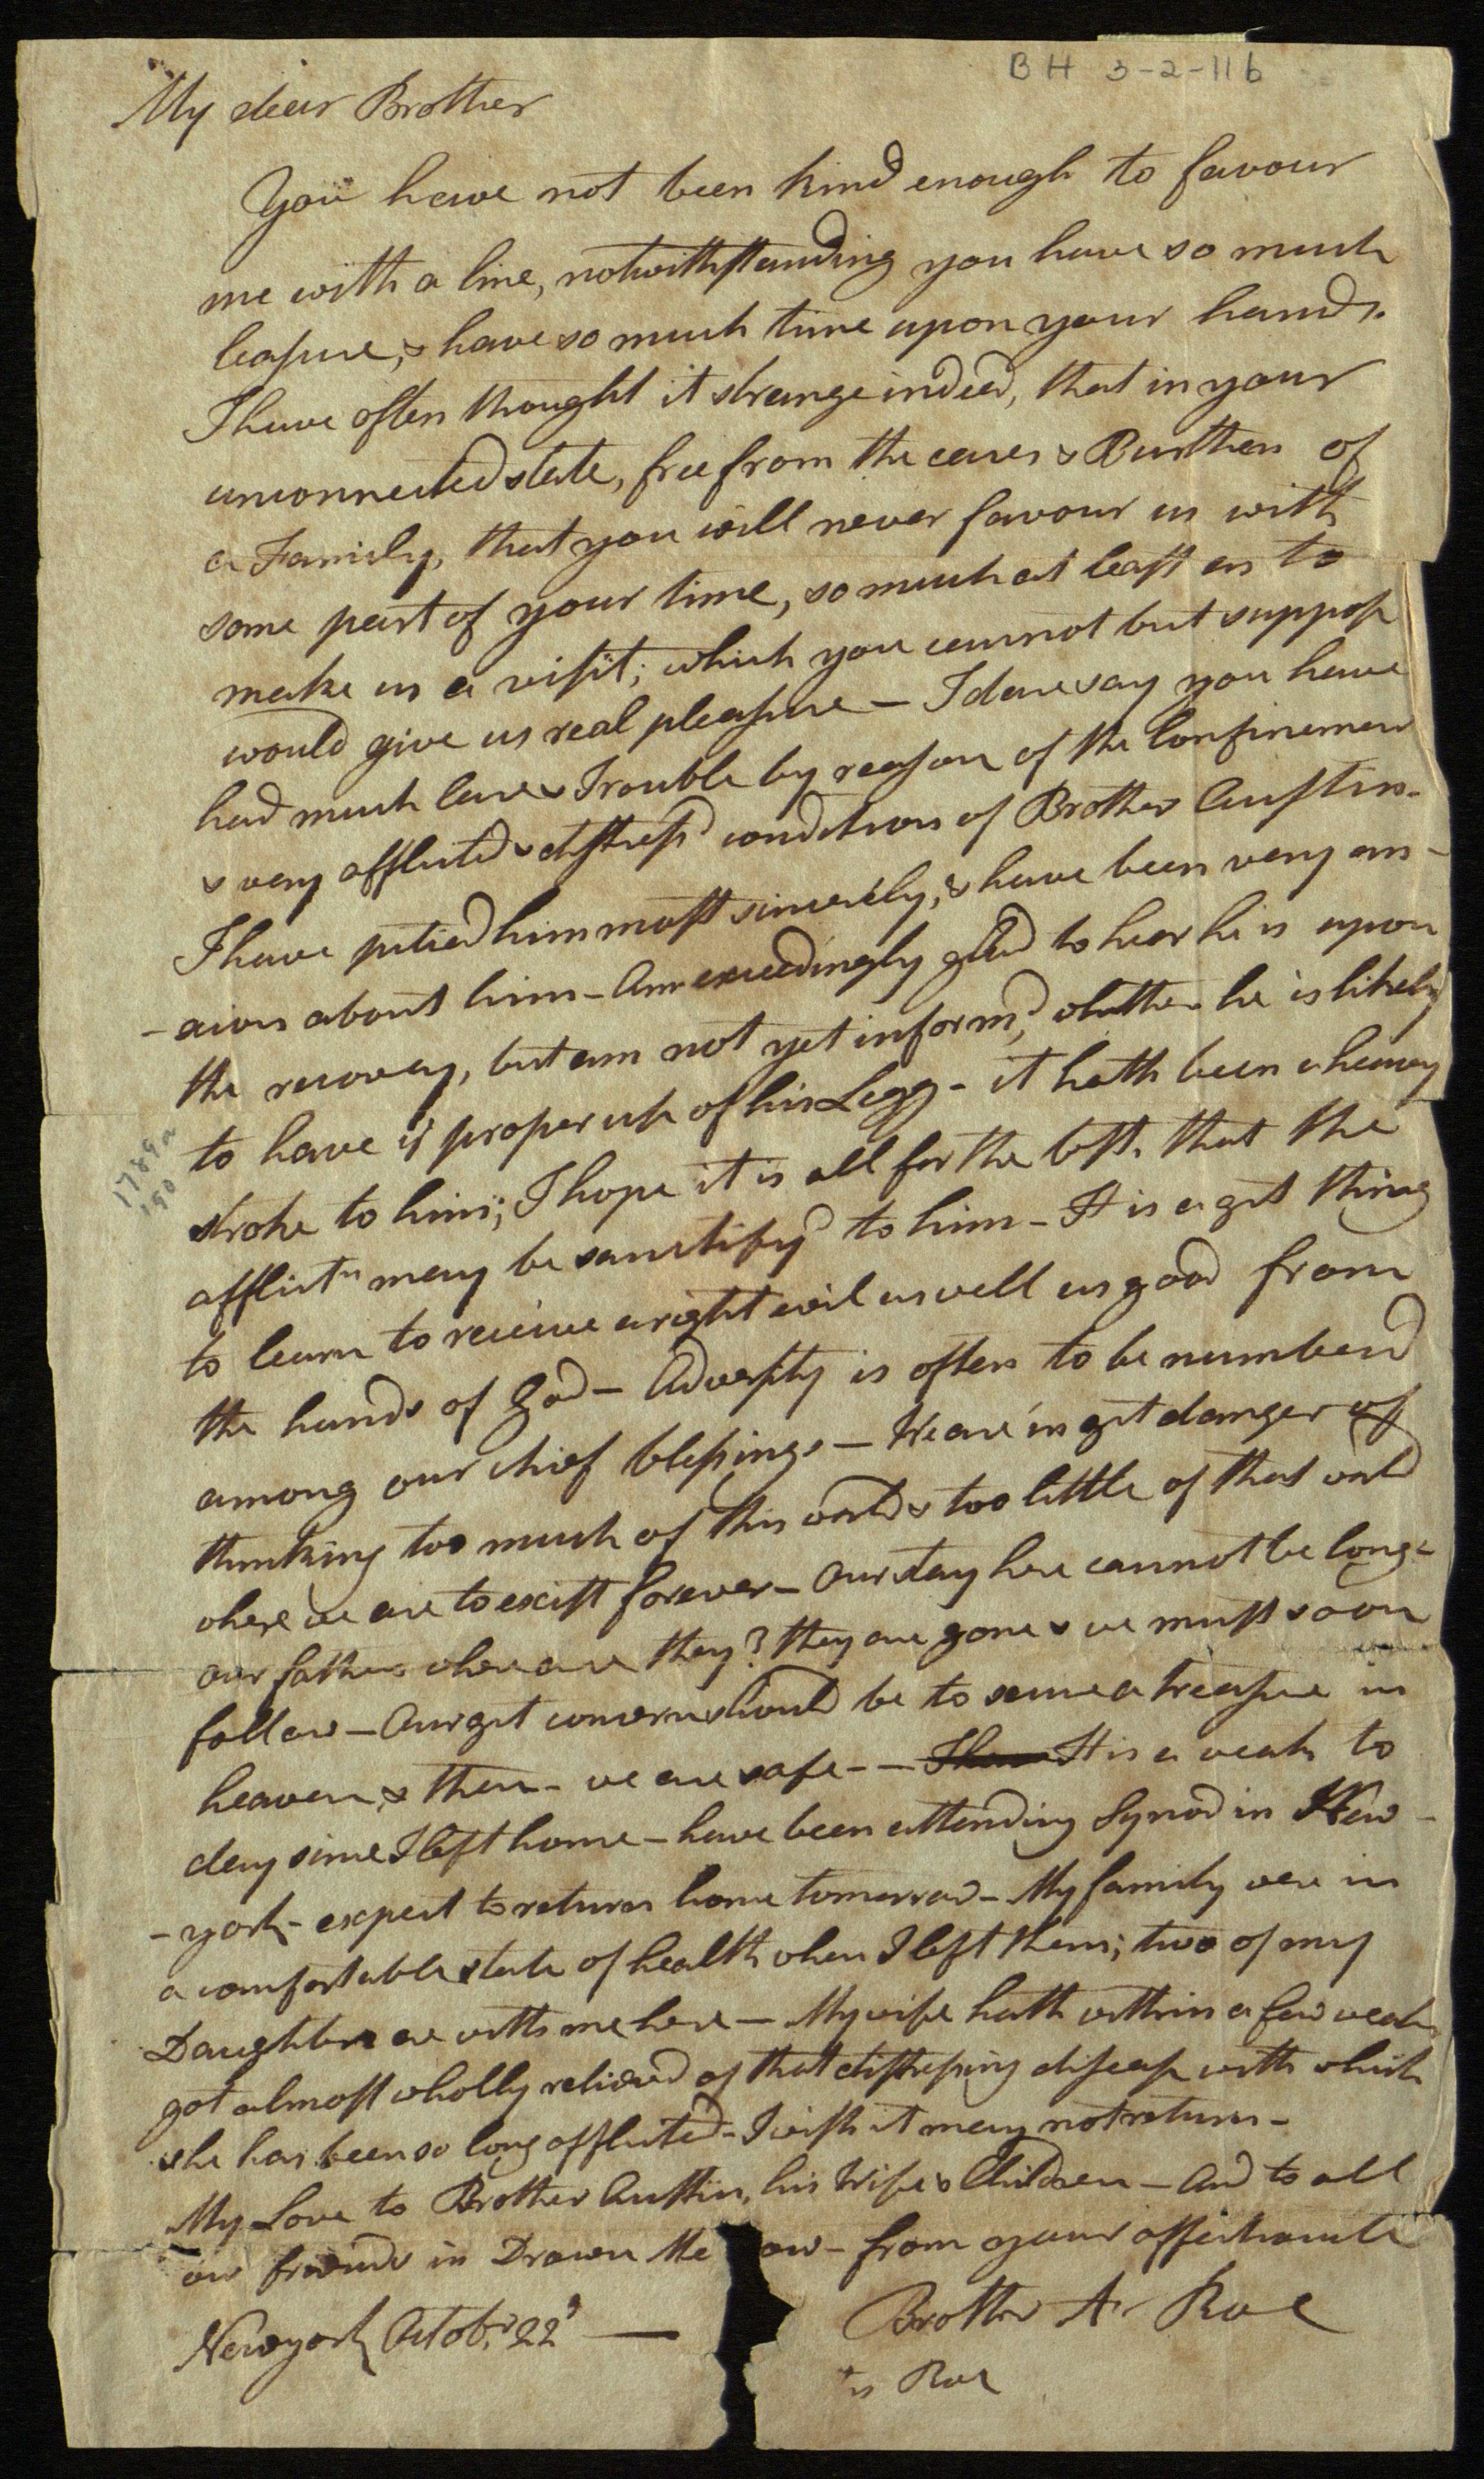 BH 3-2-116
My dear Brother
You have not been kind enough to favour
me with a line, notwithstanding you have so much
leasure, & have so much time upon your hands.
I have often thought it strange indeed, that in your
unconnected state, free from the cares & Burthen of
a Family, that you will never favour us with
some part of your time, so much at least as to
make us a visit; which you cannot but suppose
would give us real pleasure — I dare say you have
had much Care & Trouble by reason of the Confinement
& very afflicted & distress'd condition of Brother Austin.
I have pitied him most sincerely, & have been very anx-
-aious about him - Am exceedingly glad to hear he is upon
the recovery, but am not yet inform'd, whether he is likely
to have ye proper use of his Legg - it hath been a heavy
stroke to him; I hope it is all for the best, that the
afflictn may be sanctify'd to him - It is a grt thing
to learn to receive aright evil as well as good from
the hands of God - Adversity is often to be numberd
among our chief blessings — We are in grt danger of
thinking too much of this world & too little of that world
where we are to exist forever - Our stay here cannot be long -
our fathers where are they? they are gone & we must soon
follow - Our grt concern should be to secure a treasure in
heaven, & then - we are safe - - It is a week to
day since I left home - have been attending Synod in New-
-york - expect to return home tomorrow - My family were in
a comfortable state of health when I left them; two of my
Daughters are with me here — My wife hath within a few weeks
got almost wholly relieved of that distressing disease with which
she has been so long afflicted - I wish it may not return -
My Love to Brother Austin, his Wife & Children - And to all
our friends in Drown Me ow - from your affectionate
Brother A. Roe
Newyork Octobr 22d —
is Roe
1789 or
'90